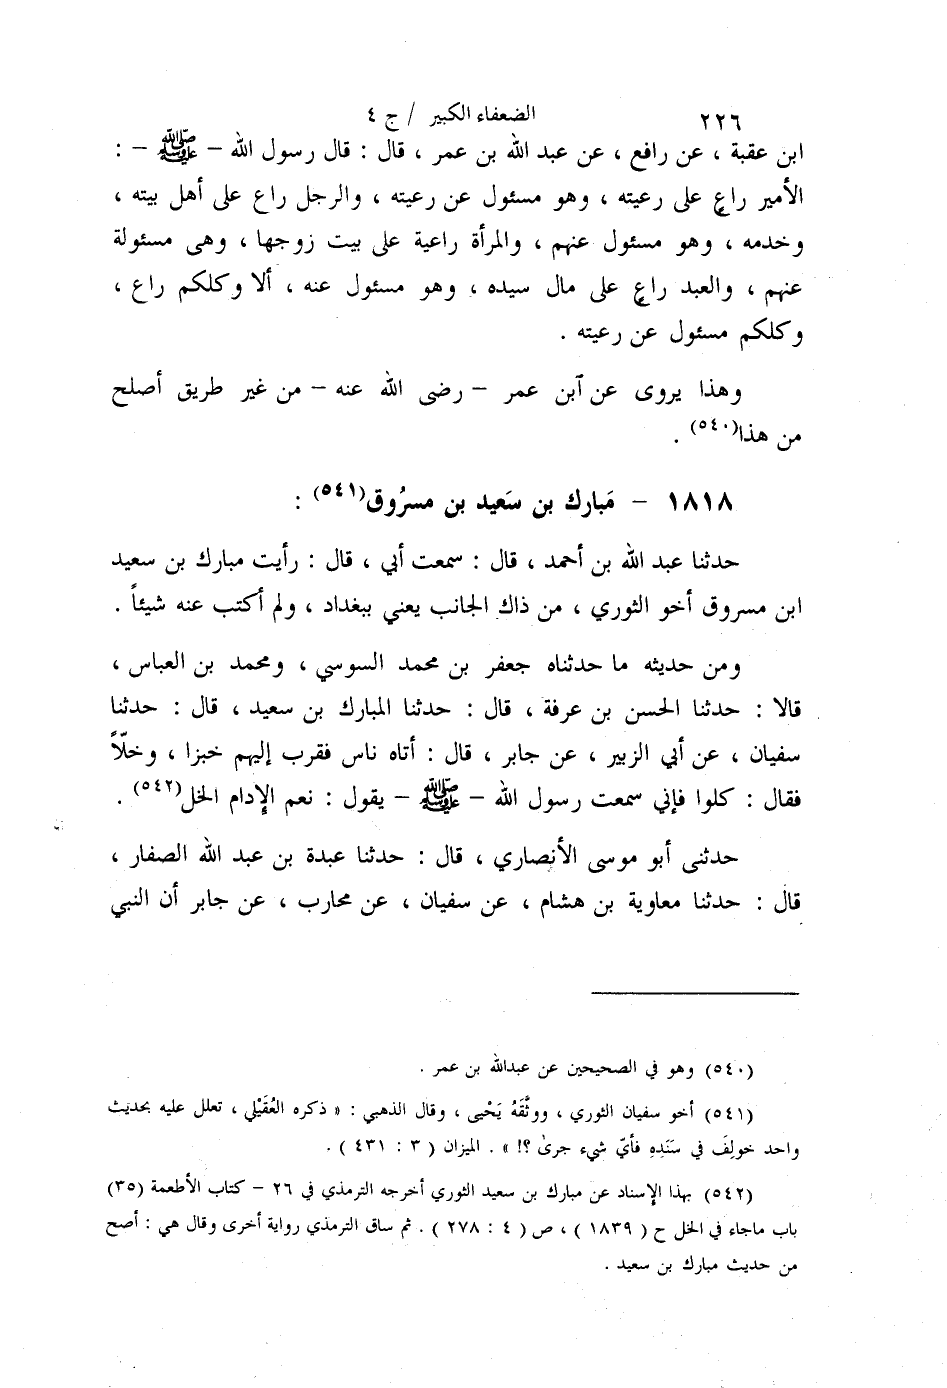 ٢٢٦ الضعفاء الكبير / ج ٤
ابن عقبة ، عن رافع ، عن عبد الله بن عمر ، قال : قال رسول الله – ﷺ – :
الأمير راعٍ على رعيته ، وهو مسئول عن رعيته ، والرجل راع على أهل بيته ،
وخدمه ، وهو مسئول عنهم ، والمرأة راعية على بيت زوجها ، وهى مسئولة
عنهم ، والعبد راعٍ على مال سيده ، وهو مسئول عنه ، ألا وكلكم راع ،
وكلكم مسئول عن رعيته .
وهذا يروى عن آبن عمر – رضى الله عنه – من غير طريق أصلح
من هذا(٥٤٠) .
١٨١٨ – مَبارك بن سَعيد بن مسرُوق(٥٤١) :
حدثنا عبد الله بن أحمد ، قال : سمعت أبي ، قال : رأيت مبارك بن سعيد
ابن مسروق أخو الثوري ، من ذاك الجانب يعني ببغداد ، ولم أكتب عنه شيئاً .
ومن حديثه ما حدثناه جعفر بن محمد السوسي ، ومحمد بن العباس ،
قالا : حدثنا الحسن بن عرفة ، قال : حدثنا المبارك بن سعيد ، قال : حدثنا
سفيان ، عن أبي الزبير ، عن جابر ، قال : أتاه ناس فقرب إليهم خبزا ، وخلّاً
فقال : كلوا فإني سمعت رسول الله – ﷺ – يقول : نعم الإدام الخل(٥٤٢) .
حدثنى أبو موسى الأنصاري ، قال : حدثنا عبدة بن عبد الله الصفار ،
قال : حدثنا معاوية بن هشام ، عن سفيان ، عن محارب ، عن جابر أن النبي
(٥٤٠) وهو في الصحيحين عن عبدالله بن عمر .
(٥٤١) أخو سفيان الثوري ، ووثَّقَهُ يَحْيى ، وقال الذهبي : « ذكره العُقَيْلي ، تعلل عليه بحديث
واحد خولِفَ في سَنَدِهِ فأيّ شيء جرىٰ ؟! » . الميزان ( ٣ : ٤٣١ ) .
(٥٤٢) بهذا الإسناد عن مبارك بن سعيد الثوري أخرجه الترمذي في ٢٦ – كتاب الأطعمة (٣٥)
باب ماجاء في الخل ح ( ١٨٣٩ ) ، ص ( ٤ : ٢٧٨ ) . ثم ساق الترمذي رواية أخرى وقال هي : أصح
من حديث مبارك بن سعيد .